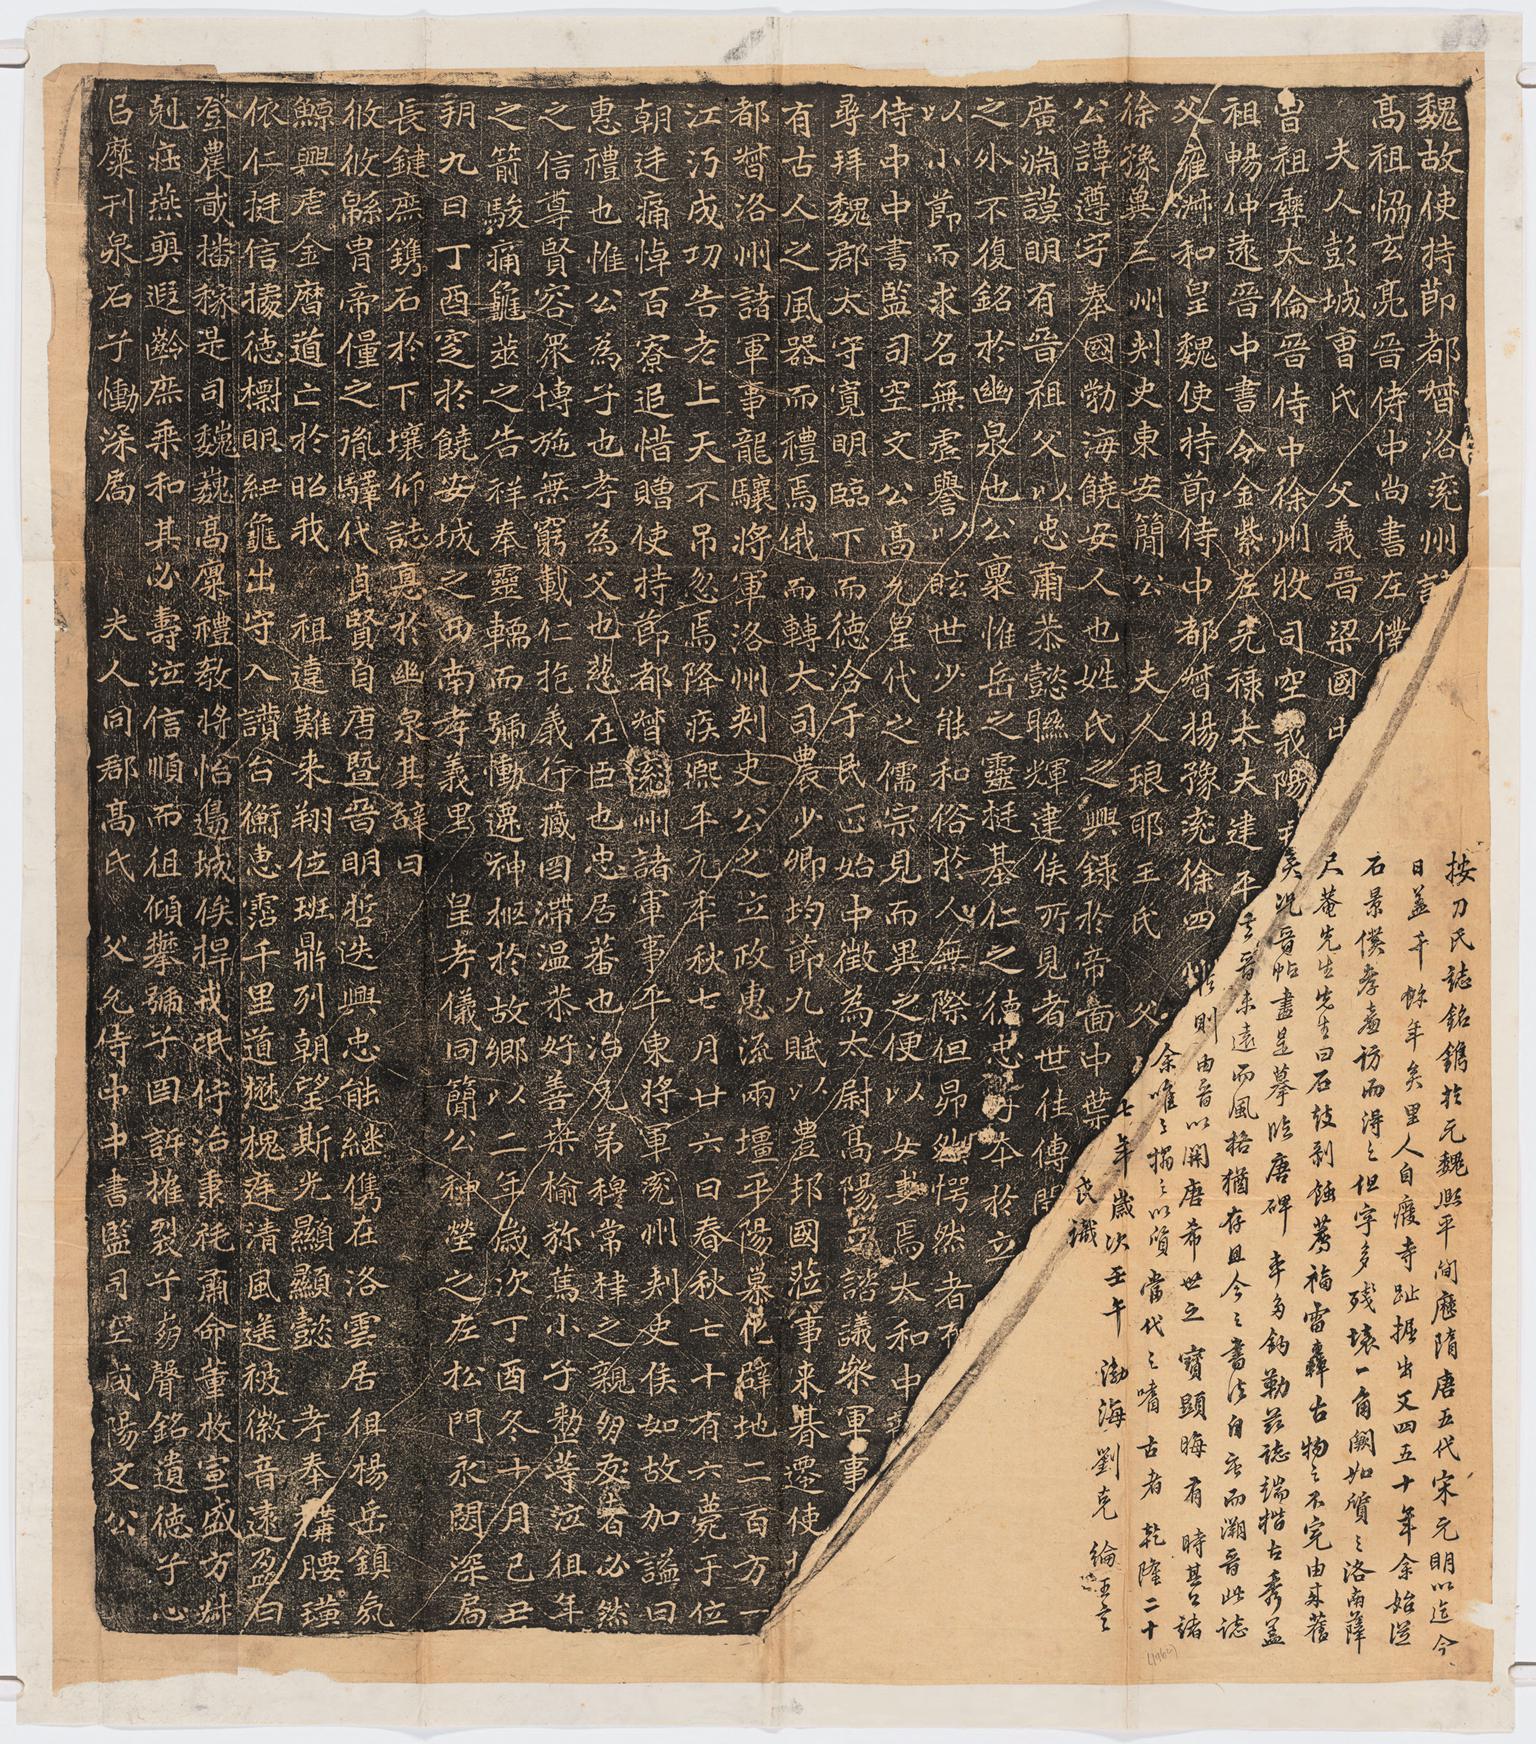 魏故使持節都督洛兗州
高祖協玄亮晉侍中尚書左僕
夫人彭城曹氏　父義晉梁國
曾祖彝太倫晉侍中徐州牧司空義陽
祖暢仲遠晉中書令金紫左光祿大夫建平
父雍淑和皇魏使持節侍中都督揚豫兗徐四
徐豫冀三州刾史東安簡公　夫人琅耶王氏　父
公諱遵字奉國勃海饒安人也姓氏之興錄於帝啚中葉
廣淵謨明有晉祖父以忠肅恭懿聯輝建侯所見者世佳傳聞
之外不復銘於幽泉也公稟惟岳之靈挺基仁之德忠孝本於立
以小節而求名無虛譽以眩世少能和俗於人無際但昂然愕然者
侍中中書監司空文公高允皇代之儒宗見而異之便以女妻焉太和中
尋拜魏郡太守寬明臨下而德洽于民正始中徵為太尉高陽王諮議叅軍事
有古人之風器而禮焉俄而轉大司農少卿均節九賦以豐邦國莅事未朞遷使
都督洛州諸軍事龍驤將軍洛州刾史公之立政惠流兩壃平陽慕化辟地二百方一
江沔成功告老上天不吊忽焉降疾熙平元年秋七月廿六日春秋七十有六薨于位
朝廷痛悼百寮追惜贈使持節都督兗州諸軍事平東將軍兗州刾史侯如故加謚曰
惠禮也惟公為子也孝為父也慈在臣也忠居蕃也治兄弟穆常棣之親朋友著必然
之信尊賢容眾博施無窮載仁抱義行藏罔滯温恭好善桒榆弥篤小子整等泣徂年
之箭駿痛龜莁之告祥奉靈轜而號慟遷神柩於故鄉以二年歲次丁酉冬十月己丑
朔九日丁酉窆於饒安城之西南孝義里　皇考儀同簡公神塋之左松門永閟深扃
長鍵庶鐫石於下壤仰誌真於幽泉其辭曰
攸攸緜胄帝僮之胤驛代貞賢自唐暨晉明哲迭興忠能継儁在洛雲居徂楊岳鎮氛
鯨興虐金曆道亡於昭我　祖違難来翔位班鼎列朝望斯光顯顯懿　考奉構腰璜
依仁挺信據德櫩眀紐龜出守入讚台衡惠霑千里道懋槐庭清風遂被徽音遠盈曰
登農畝播稼是司魏魏高廪禮教將怡邊城俟捍戎氓佇治秉旄肅命董牧宣威方粛
剋症燕奭遐齡庶乘和其必壽泣信順而徂傾攀號子罔訴摧裂予䓛聲銘遺徳予心
臣糜刊泉石予慟深扃　夫人同郡高氏　父允侍中中書監司空咸陽文公
按刀氏誌銘鐫於元魏熙平間歷隋唐五代宋元明以迄今
日盖千餘年矣里人自廢寺趾掘出又四五十年余始從
石景僕孝廉訪而得之但字多殘壞一角闕如質之洛南薛
尺菴先生先生曰石鼓剥蝕薦福雷轟古物之不完由来舊
矣況晉帖盡是摹臨唐碑率多鈎勒茲誌端楷古秀盖
去晉未遠而風格猶存且今之書法自唐而溯晉此誌
則由晉以開唐希世之寶顯晦有時其公諸
余唯之搨之以質當代之嗜古者　乾隆二十
七年歲次壬午　渤海劉克綸王言
氏識